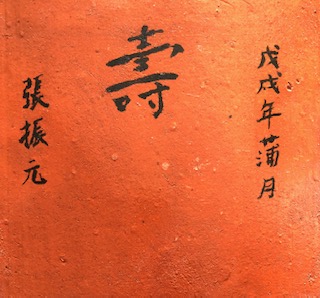 戊戌年蒲月
壽
張振元